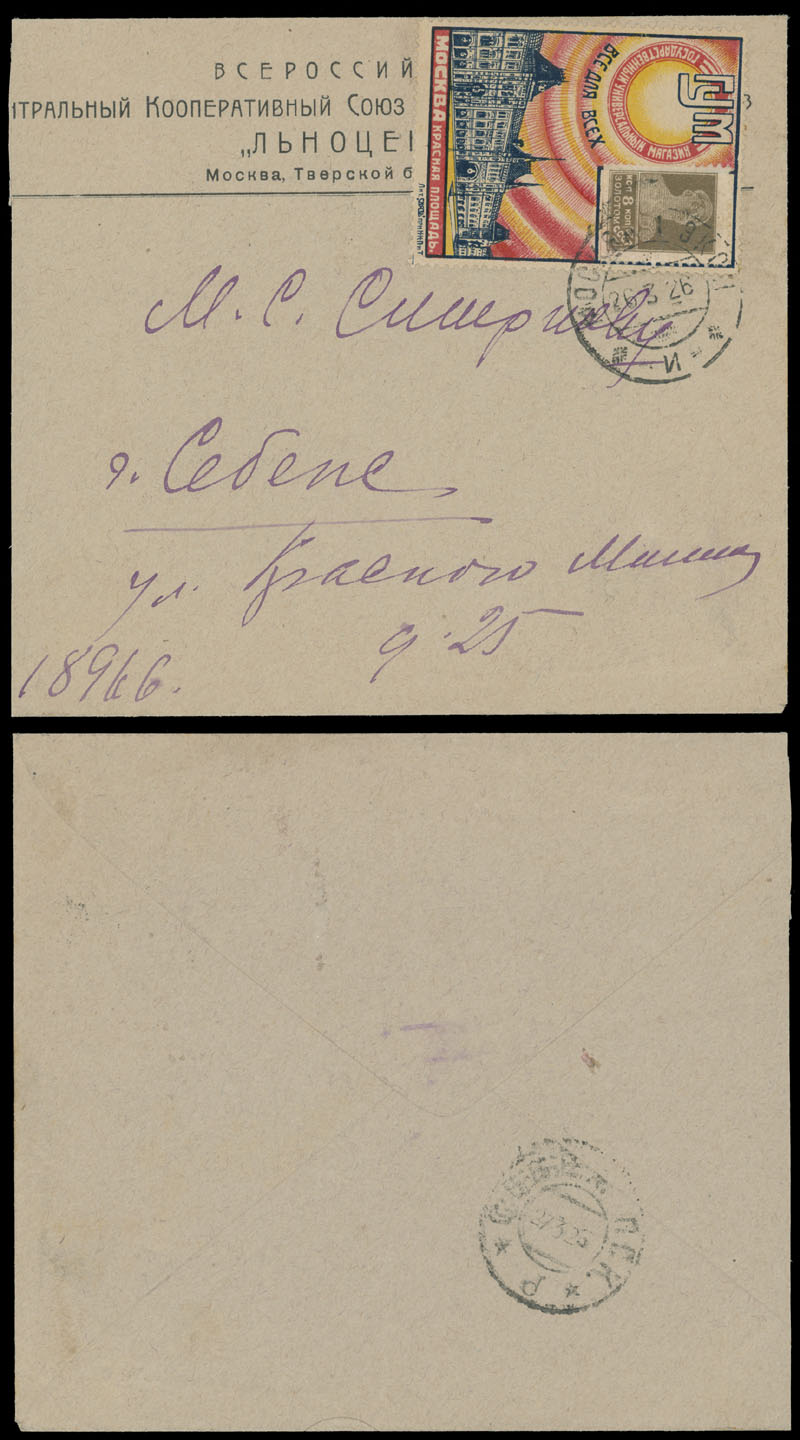 ВСЕРОССИЙ
НТРАЛЬНЫЙ КООПЕРАТИВНЫЙ СОЮЗ
„ЛЬНОЦЕ
Москва, Тверской б
ГУМ
ГОСУДАРСТВЕННЫЙ УНИВЕРСАЛЬНЫЙ МАГАЗИН
ВСЕ ДЛЯ ВСЕХ
МОСКВА КРАСНАЯ ПЛОЩАДЬ.
8 КОП.
ЗОЛОТОМ
26 3 26
И
М. С. Смирнову
г. Себеж
ул. Красного Милиц
д. 25
18966.
27.3.26
ПСК.
Р